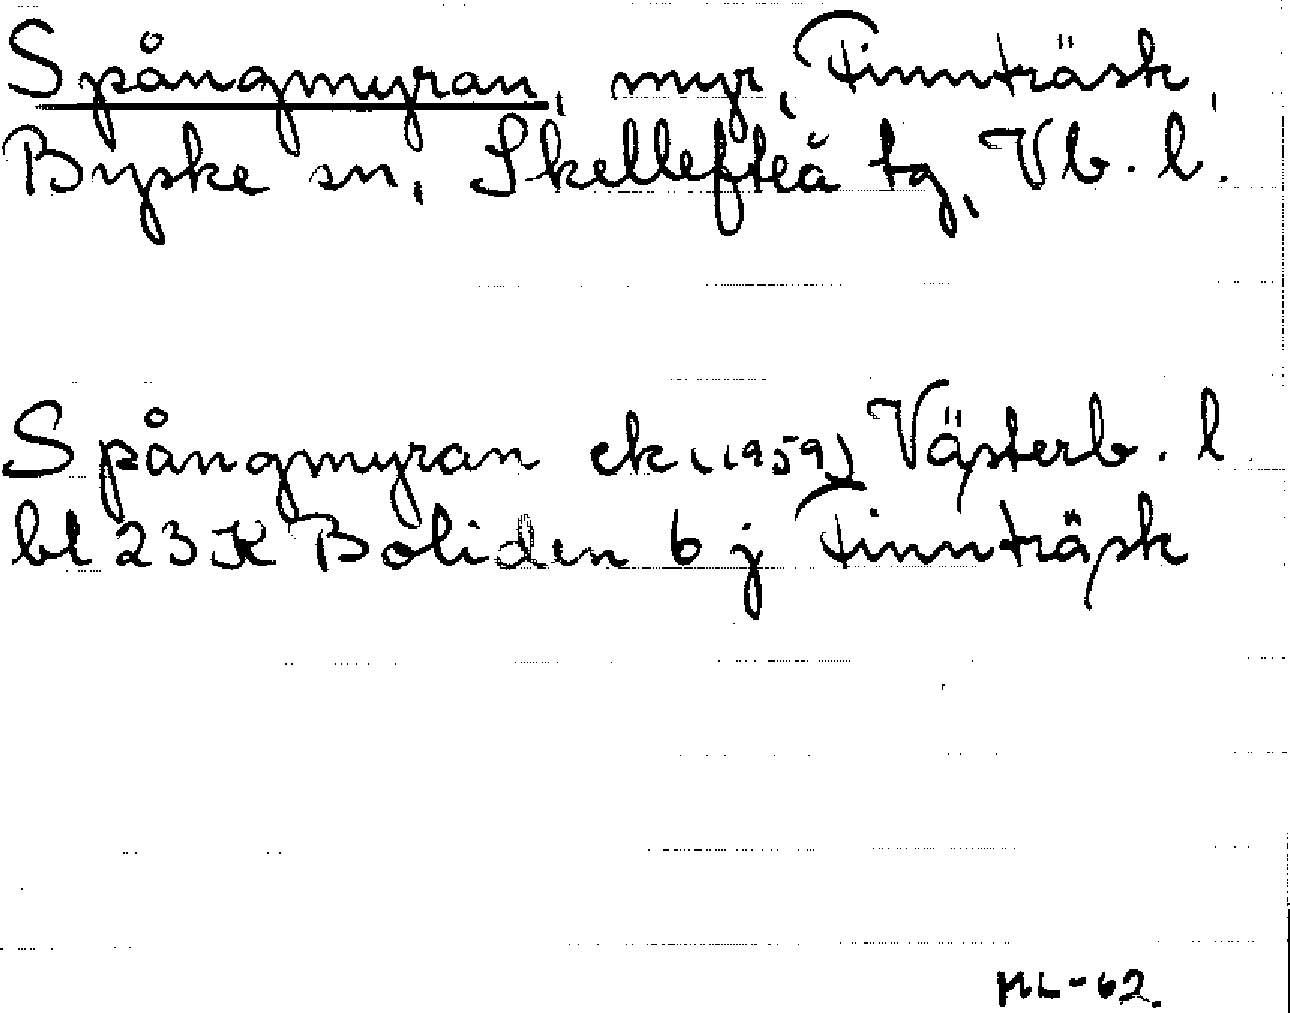 Spångmyran, myr, Finnträsk,
Byske sn, Skellefteå tg, Vb. l.
Spångmyran ek (1959) Västerb. l
bl 23 K Boliden 6 j Finnträsk
ML-62.